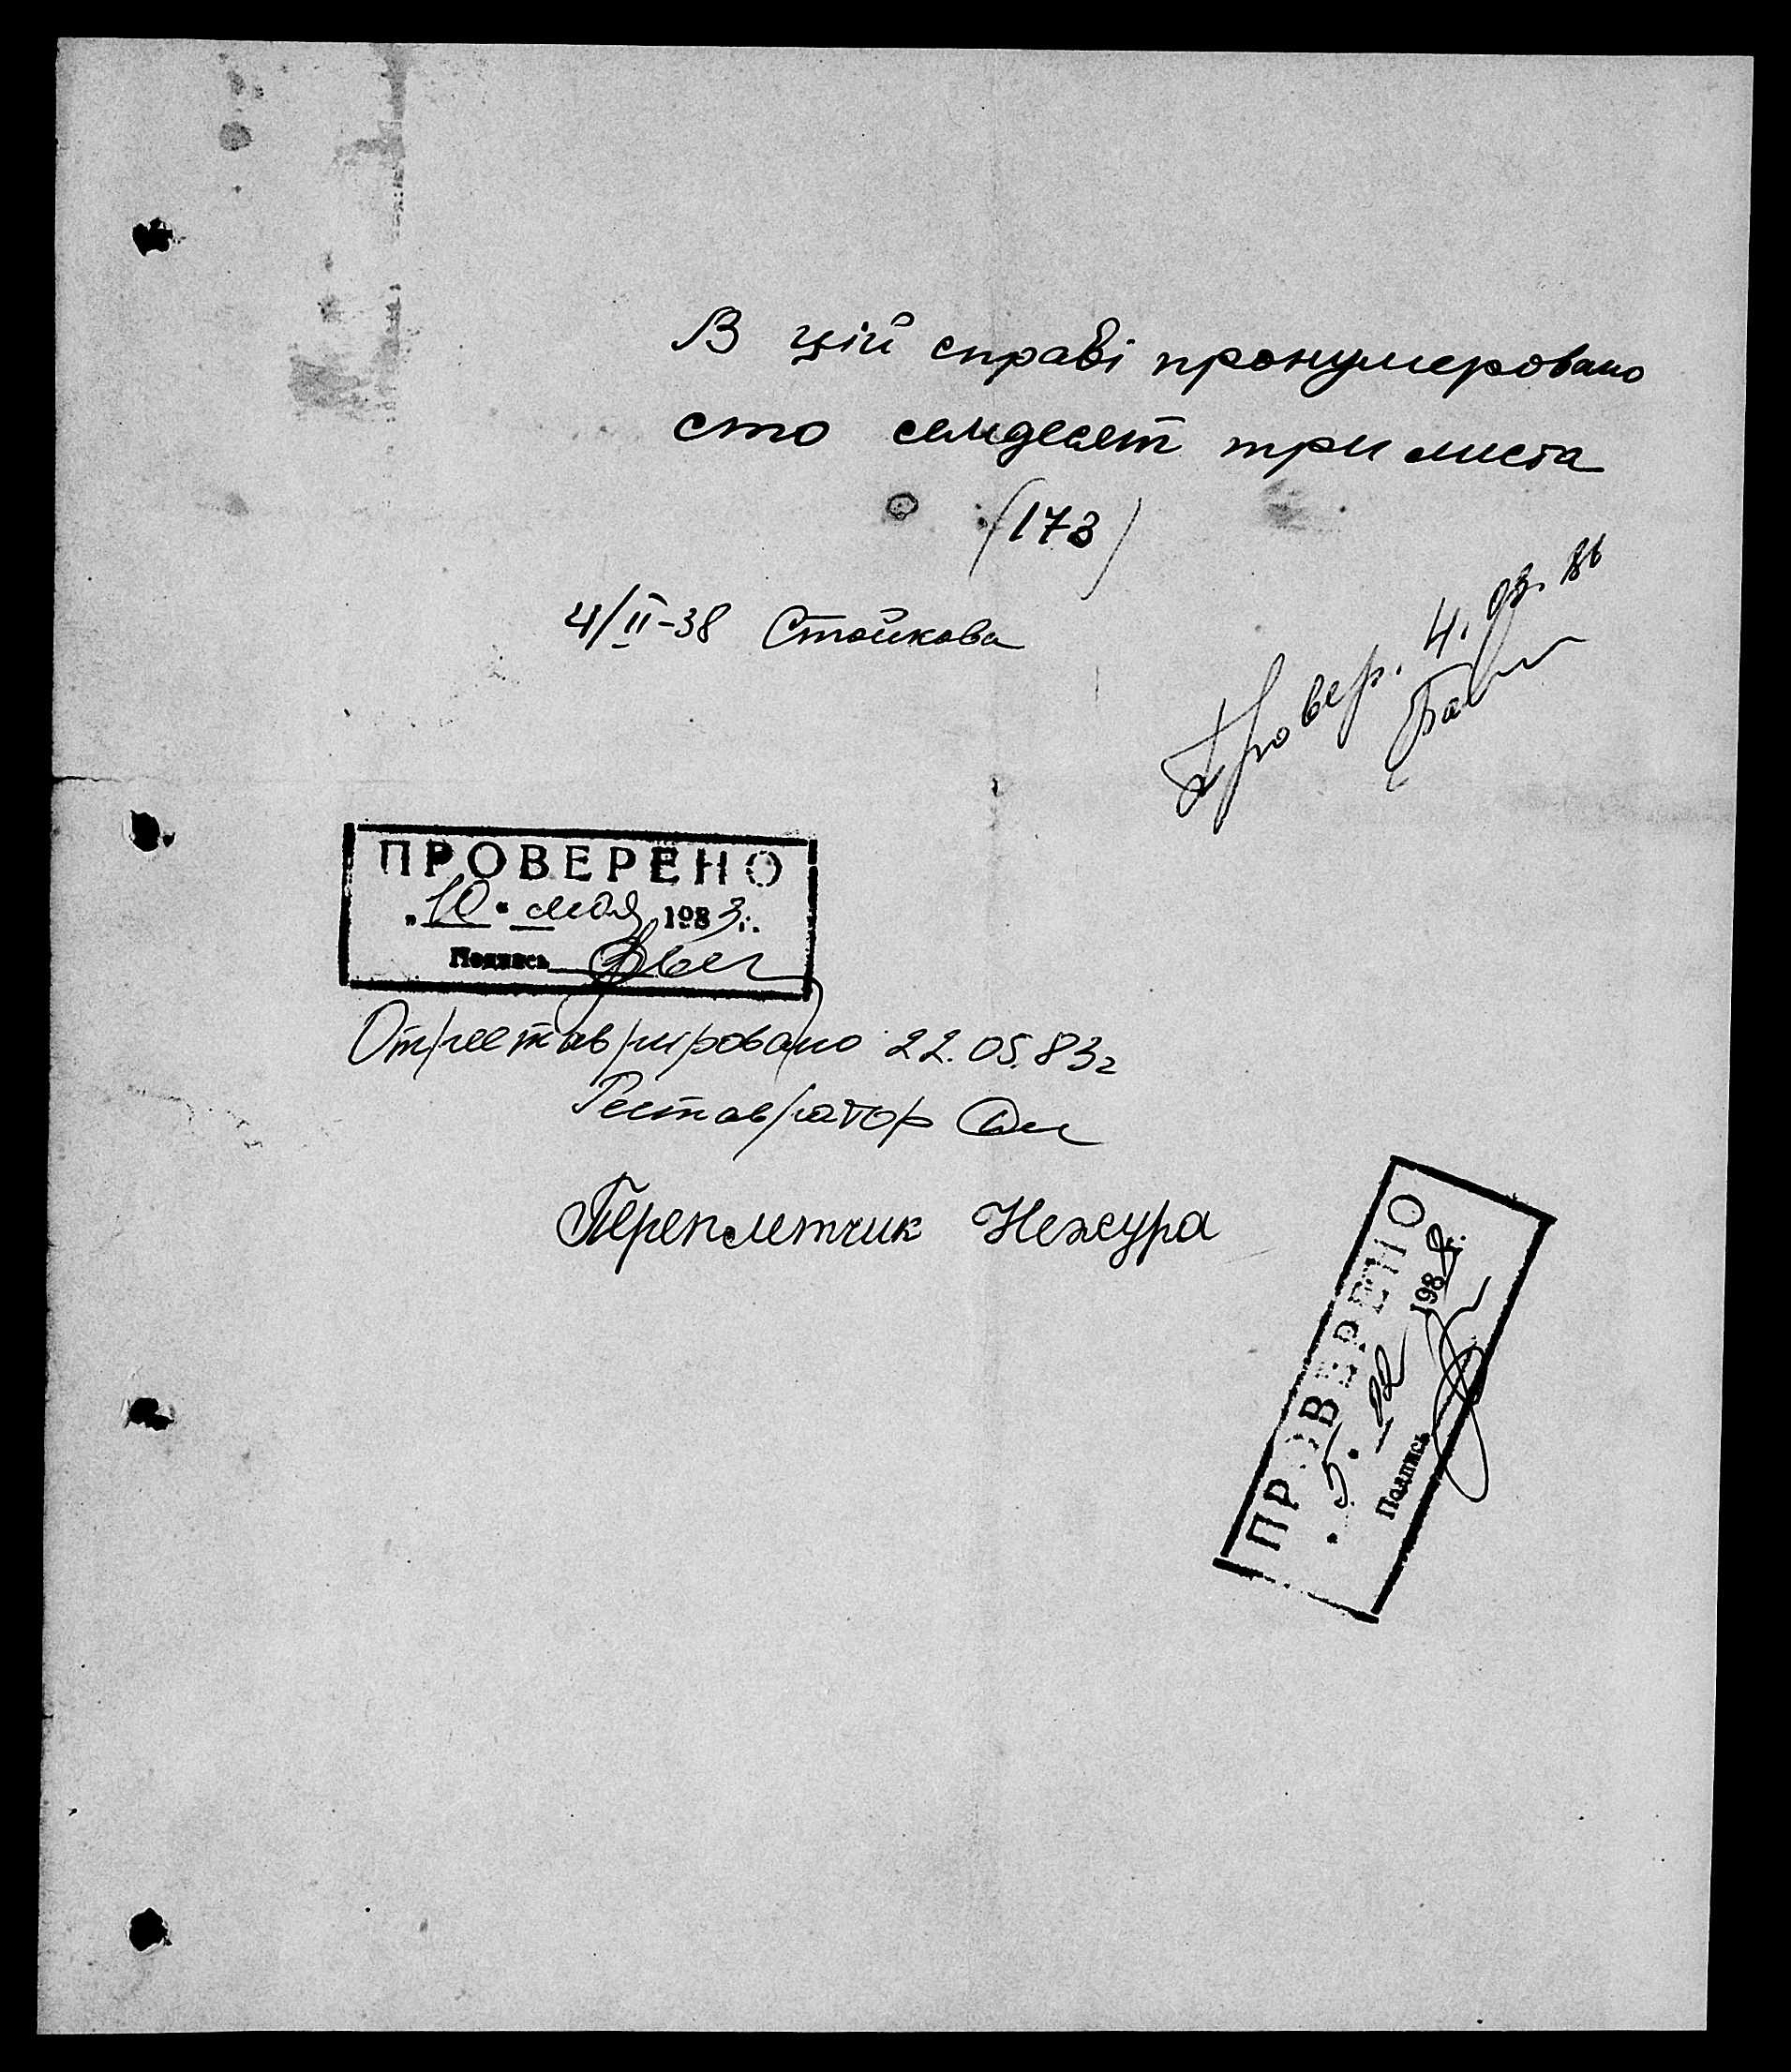 В цій справі пронумеровано
сто семдесят три листа
(173)
4/II-38 Стойкова
Провер. 4. 03. 86
ПРОВЕРЕНО
„10“ мая 1983 г.
Подпись
Отреставрировано 22.05.83г
Реставратор
Переплетчик Нежура
ПРОВЕРЕНО
198 г.
Подпись